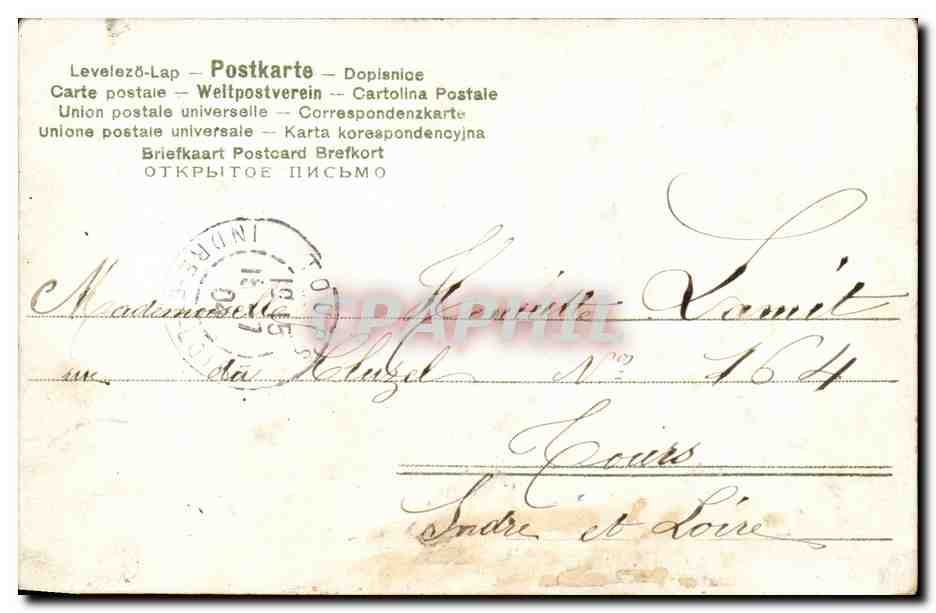 Levelező-Lap — Postkarte — Dopisnice
Carte postale — Weltpostverein — Cartolina Postale
Union postale universelle — Correspondenzkarte
Unione postale universale — Karta korespondencyjna
Briefkaart Postcard Brefkort
ОТКРЫТОЕ ПИСЬМО
TOURS
INDRE
19 15
04
Mademoiselle Henriette Lamit
du N° 164
Tours
Indre et Loire